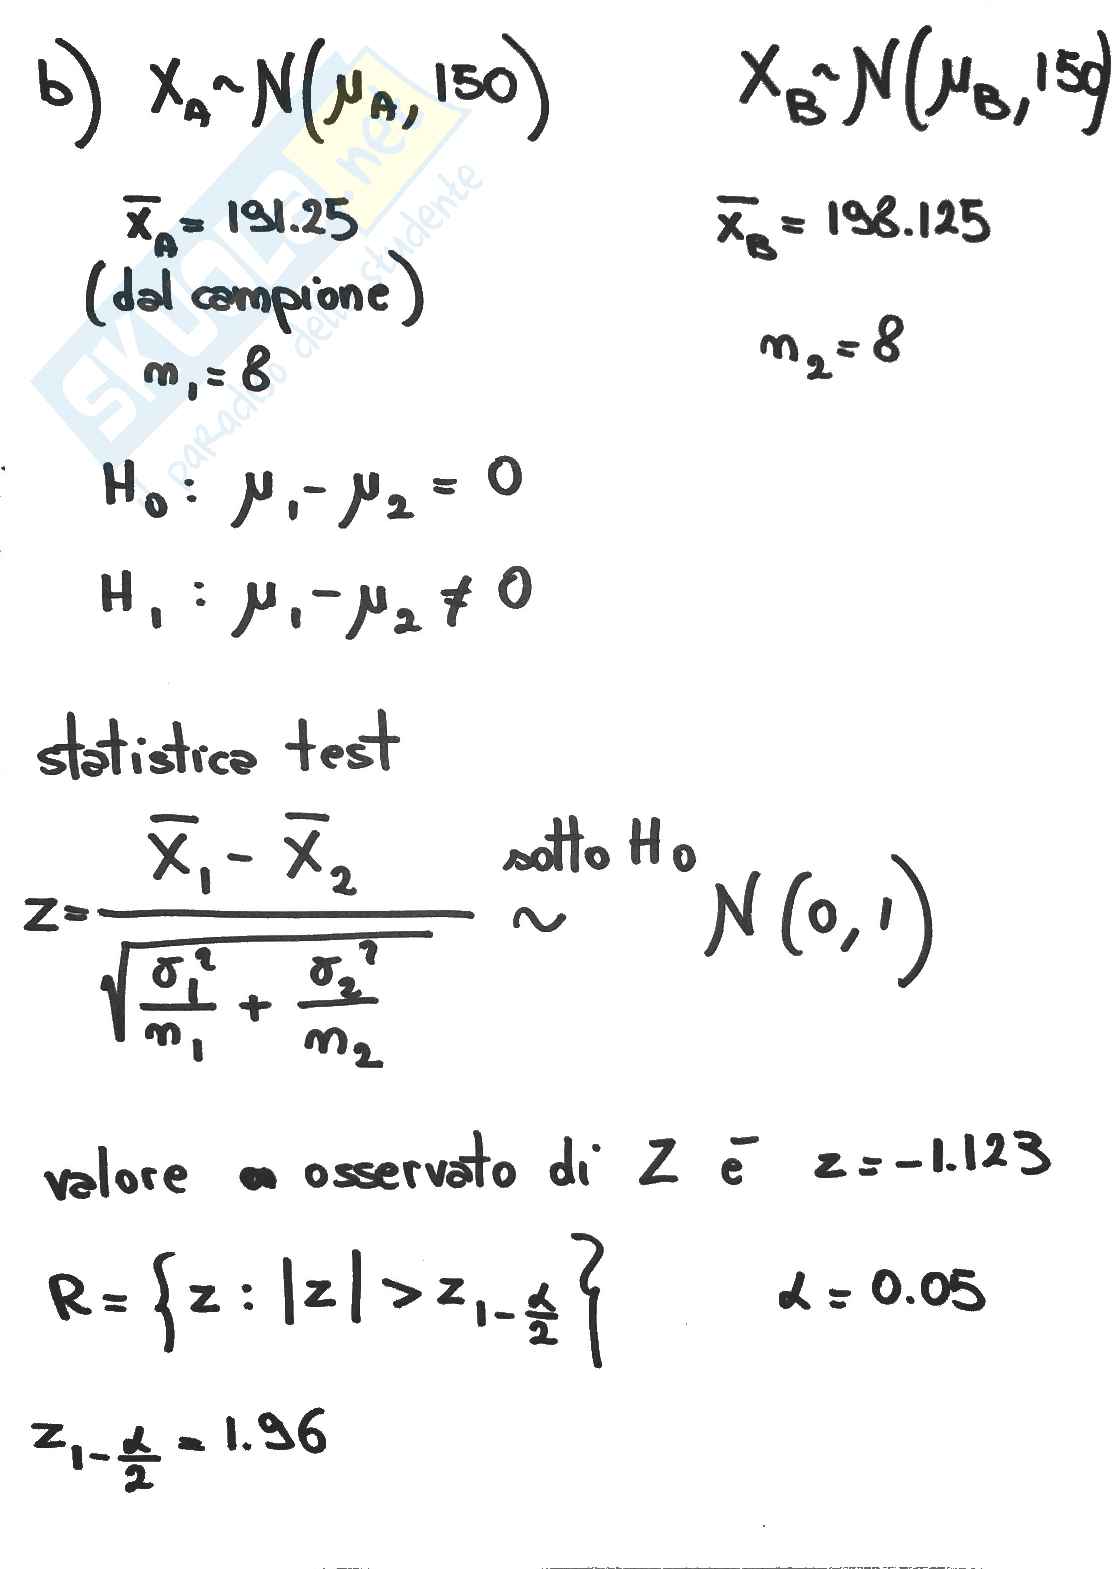 b) X_A ~ N(μ_A, 150) X_B ~ N(μ_B, 150)
x̄_A = 191.25 x̄_B = 198.125
(dal campione)
n_1 = 8 n_2 = 8
H_0 : μ_1 - μ_2 = 0
H_1 : μ_1 - μ_2 ≠ 0
statistica test
Z = (X̄_1 - X̄_2) / √(σ_1² / n_1 + σ_2² / n_2) sotto H_0 ~ N(0, 1)
valore osservato di Z è z = -1.123
R = {z : |z| > z_{1-α/2}} α = 0.05
z_{1-α/2} = 1.96
SKUOLA.net
il paradiso dello studente